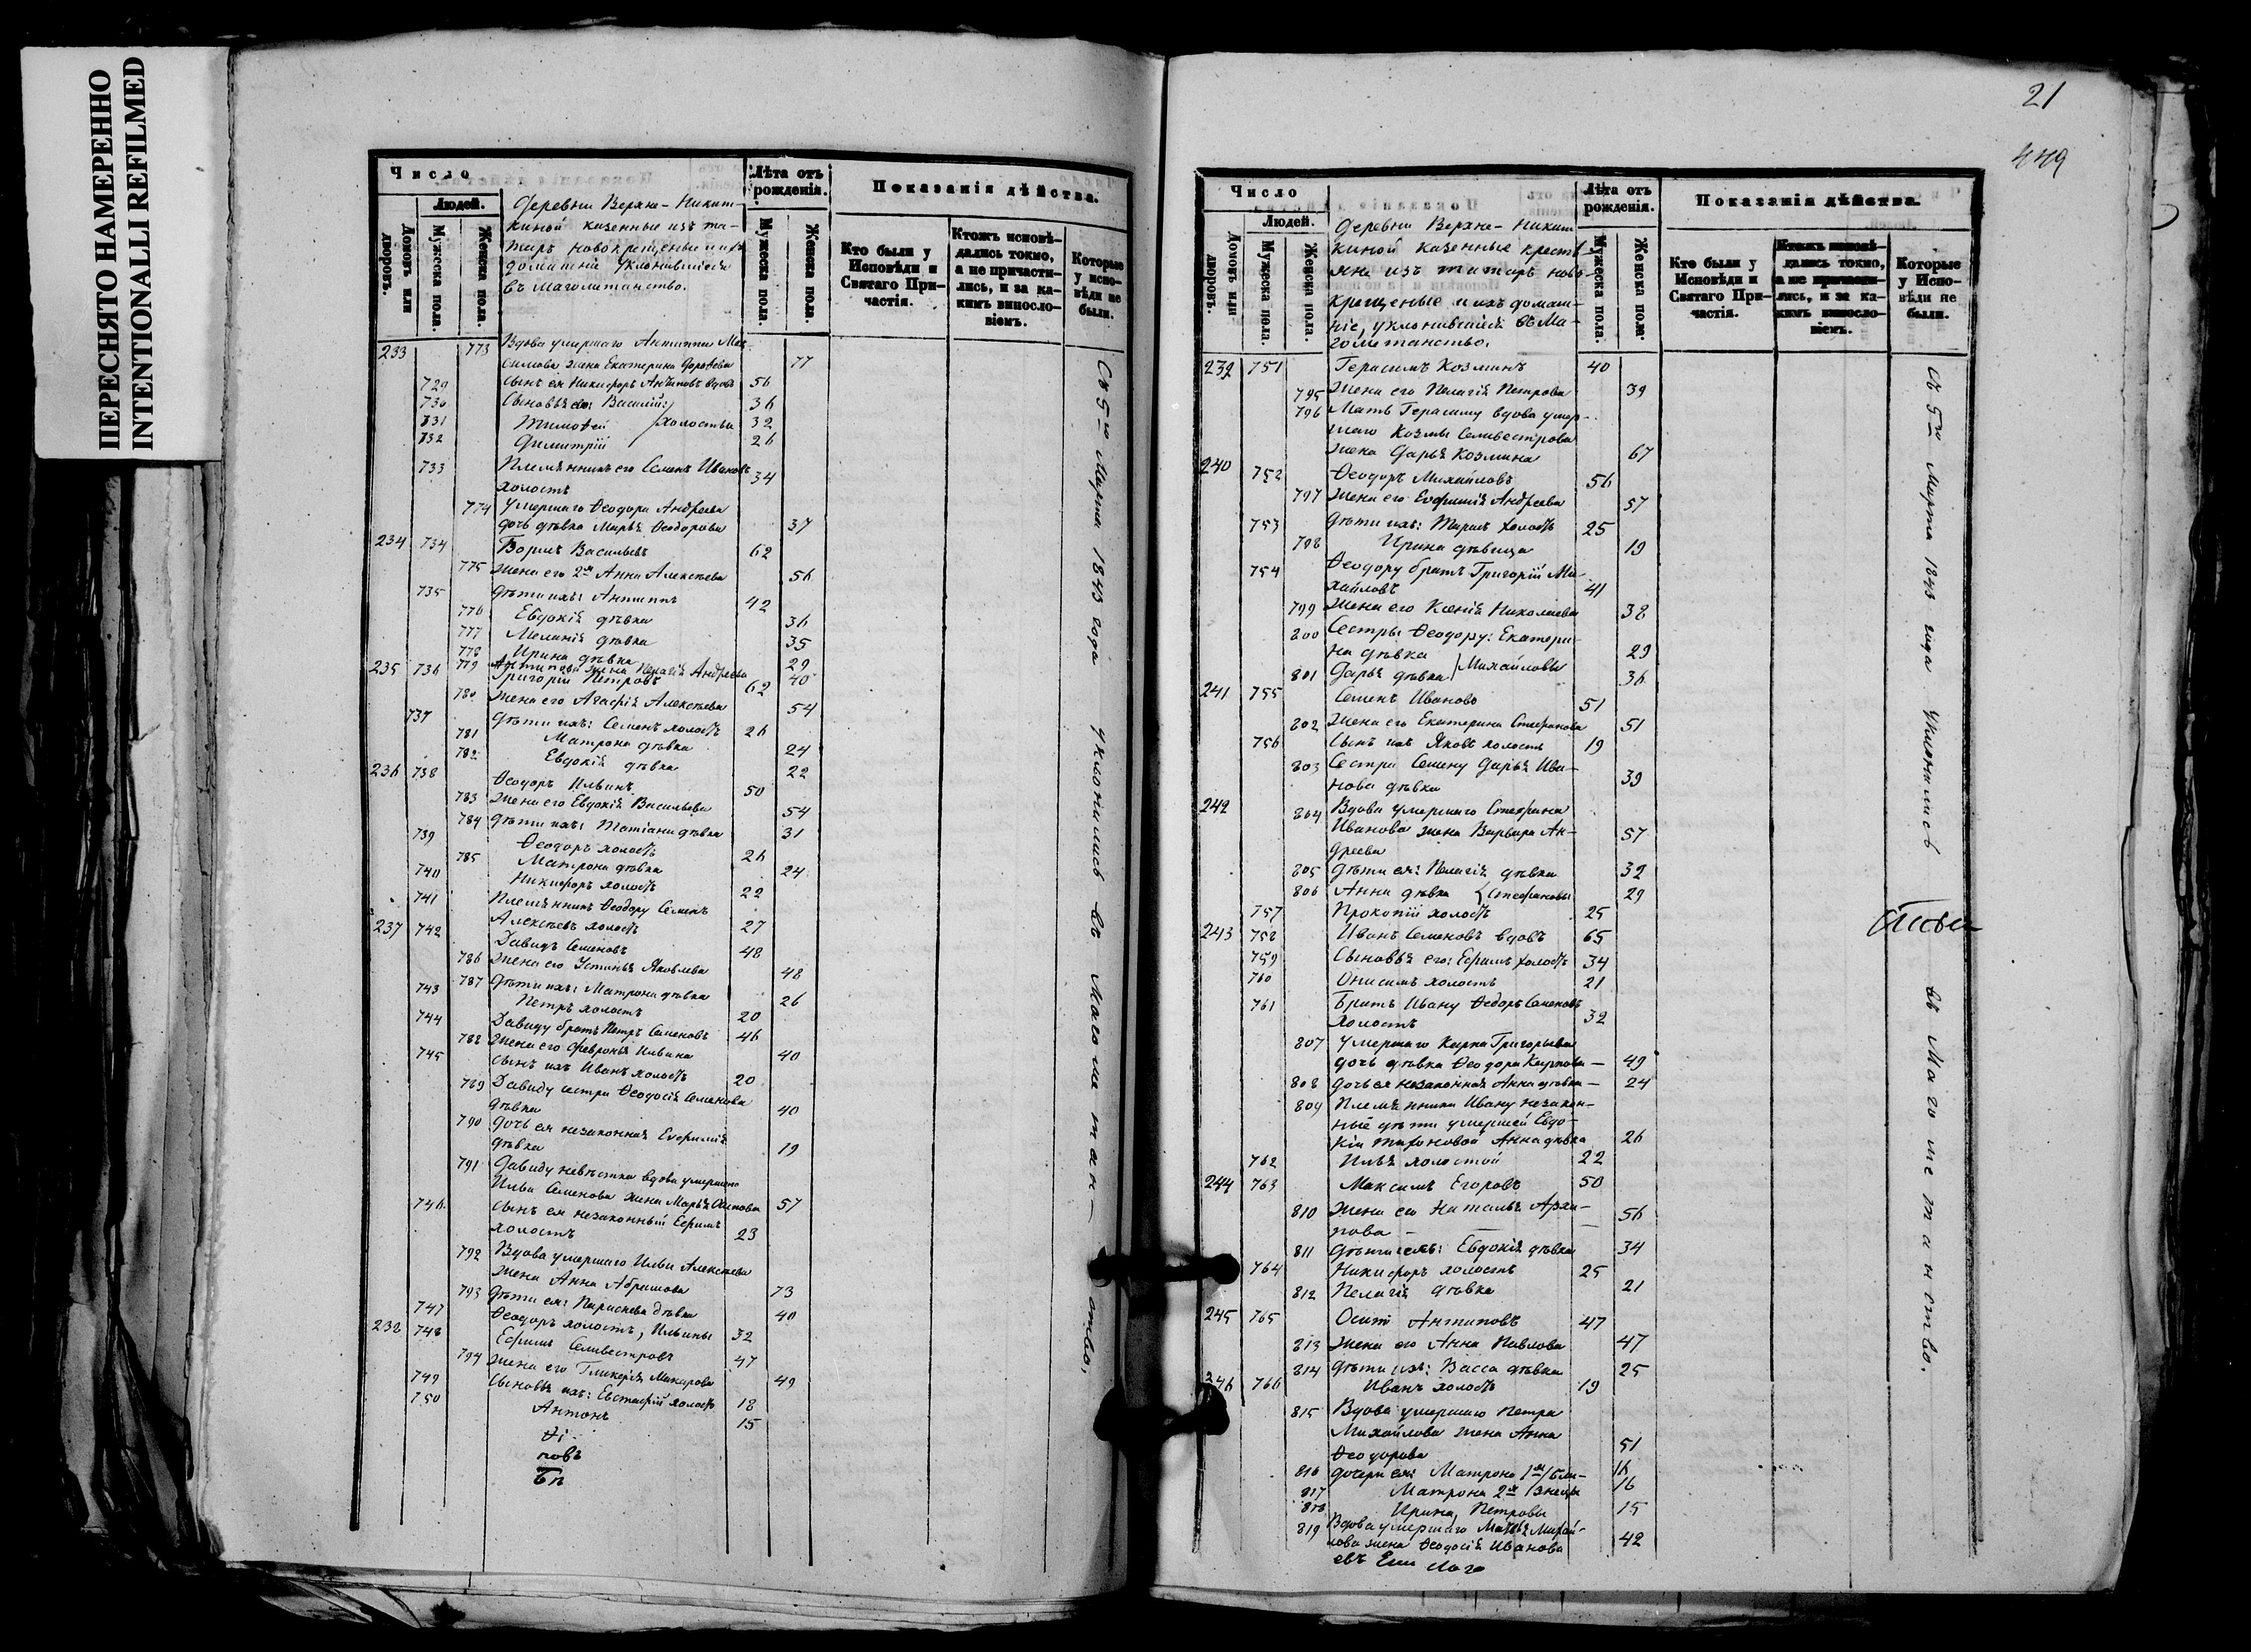 ПЕРЕСНЯТО НАМЕРЕННО
INTENTIONALLI REFILMED
Число
Людей.
Домовъ или дворовъ.
Мужеска пола.
Женска пола.
Деревни Верхне-Никит-
киной казенные изъ та-
таръ новокрещеные и ихъ
домашніе уклонившіеся
въ Магометанство.
Лѣта отъ рожденія.
Мужеска пола.
Женска пола.
Показанія дѣйства.
Кто были у Исповѣди и Святаго Причастія.
Ктожъ исповѣдались токмо, а не причастились, и за какимъ винословіемъ.
Которые у исповѣди не были.
233 773 Вдова умершаго Антиппы Мак-
симова жена Екатерина Дорофеева 77
729 Сынъ ея Никифоръ Антиповъ вдовъ 56
730 Сыновья его: Василій 36
731 Тимофей холосты 32
732 Димитрій 26
733 Племянникъ его Семенъ Ивановъ
холостъ 34
774 Умершаго Ѳеодора Андреева
дочь дѣвка Марья Ѳеодорова 37
234 734 Борисъ Васильевъ 62
775 Жена его 2я Анна Алексѣева 56
735 Дѣти ихъ: Антиппъ 42
776 Евдокія дѣвка 36
777 Меланія дѣвка 35
778 Ирина дѣвка 29
779 Антипова жена Пелагія Андреева 40
235 736 Григорій Петровъ 62
780 Жена его Агафія Алексѣева 54
737 Дѣти ихъ: Семенъ холостъ 26
781 Матрона дѣвка 24
782 Евдокія дѣвка 22
236 738 Ѳеодоръ Ильинъ 50
783 Жена его Евдокія Васильева 54
784 Дѣти ихъ: Татіана дѣвка 31
739 Ѳеодоръ холостъ 26
785 Матрона дѣвка 24
740 Никифоръ холостъ 22
741 Племянникъ Ѳеодору Семенъ
Алексѣевъ холостъ 27
237 742 Давидъ Семеновъ 48
786 Жена его Устинья Яковлева 48
787 Дѣти ихъ: Матрона дѣвка 26
743 Петръ холостъ 20
744 Давиду братъ Петръ Семеновъ 46
788 Жена его Февронья Ильина 40
745 Сынъ ихъ Иванъ холостъ 20
789 Давиду сестра Ѳеодосія Семенова
дѣвка 40
790 Дочь ея незаконная Евфимія
дѣвка 19
791 Давиду невѣстка вдова умершаго
Ильи Семенова жена Марья Осипова 57
746 Сынъ ея незаконный Ефимъ
холостъ 23
792 Вдова умершаго Ильи Алексѣева
жена Анна Абрамова 73
793 Дѣти ея: Параскева дѣвка 40
747 Ѳеодоръ холостъ, Ильины 32
238 748 Ефимъ Селивестровъ 47
794 Жена его Гликерія Макарова 49
749 Сыновья ихъ: Евстафій холостъ 18
750 Антонъ 15
Съ 5го Марта 1843 года уклонились въ Магометанство.
21
449
Число
Людей.
Домовъ или дворовъ.
Мужеска пола.
Женска пола.
Деревни Верхне-Никит-
киной казенные кресть-
яне изъ татаръ ново-
крещеные и ихъ домаш-
ніе, уклонившіеся въ Ма-
гометанство.
Лѣта отъ рожденія.
Мужеска пола.
Женска пола.
Показанія дѣйства.
Кто были у Исповѣди и Святаго Причастія.
Ктожъ исповѣдались токмо, а не причастились, и за какимъ винословіемъ.
Которые у Исповѣди не были.
239 751 Герасимъ Козминъ 40
795 Жена его Пелагія Петрова 39
796 Мать Герасиму вдова умер-
шаго Козмы Селивестрова
жена Дарья Козмина 67
240 752 Ѳеодоръ Михайловъ 56
797 Жена его Евфимія Андреева 57
753 Дѣти ихъ: Тарасъ холостъ 25
798 Ирина дѣвица 19
754 Ѳеодору братъ Григорій Ми-
хайловъ 41
799 Жена его Ксенія Николаева 38
800 Сестры Ѳеодору: Екатери-
на дѣвка 29
801 Дарья дѣвка Михайловы 36
241 755 Семенъ Иванова 51
802 Жена его Екатерина Стефанова 51
756 Сынъ ихъ Яковъ холостъ 19
803 Сестра Семену Дарья Ива-
нова дѣвка 39
242 804 Вдова умершаго Стефана
Иванова жена Варвара Ан-
дреева 57
805 Дѣти ея: Пелагія дѣвка 32
806 Анна дѣвка Стефановы 29
757 Прокопій холостъ 25
243 758 Иванъ Семеновъ вдовъ 65
759 Сыновья его: Ефимъ холостъ 34
760 Онисимъ холостъ 21
761 Братъ Ивану Ѳедоръ Семеновъ
холостъ 32
807 Умершаго Карпа Григорьева
дочь дѣвка Ѳеодора Карпова 49
808 Дочь ея незаконная Анна дѣвка 24
809 Племянники Ивану незакон-
ные дѣти умершей Евдо-
кіи Тихоновой Анна дѣвка 26
762 Илья холостой 22
244 763 Максимъ Егоровъ 50
810 Жена его Наталья Архи-
пова 56
811 Дѣти ихъ: Евдокія дѣвка 34
764 Никифоръ холостъ 25
812 Пелагія дѣвка 21
245 765 Осипъ Антиповъ 47
813 Жена его Анна Павлова 47
814 Дѣти ихъ: Васса дѣвка 25
246 766 Иванъ холостъ 19
815 Вдова умершаго Петра
Михайлова жена Анна
Ѳеодорова 51
816 Дочери ея: Матрона 1я Близ- 16
817 Матрона 2я знецы 16
818 Ирина, Петровы 15
819 Вдова умершаго Матвѣя Михай-
лова жена Ѳеодосія Иванова 42
Съ 5го Марта 1843 года уклонились въ Магометанство.